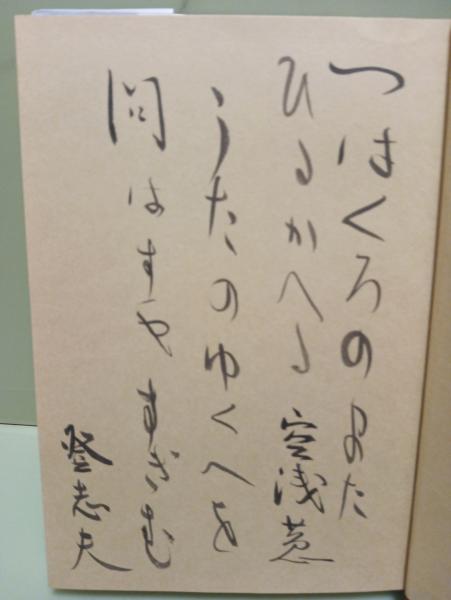 つはくろのまた
ひるかへる空浅葱
うたのゆくへを
問はすや
登志夫